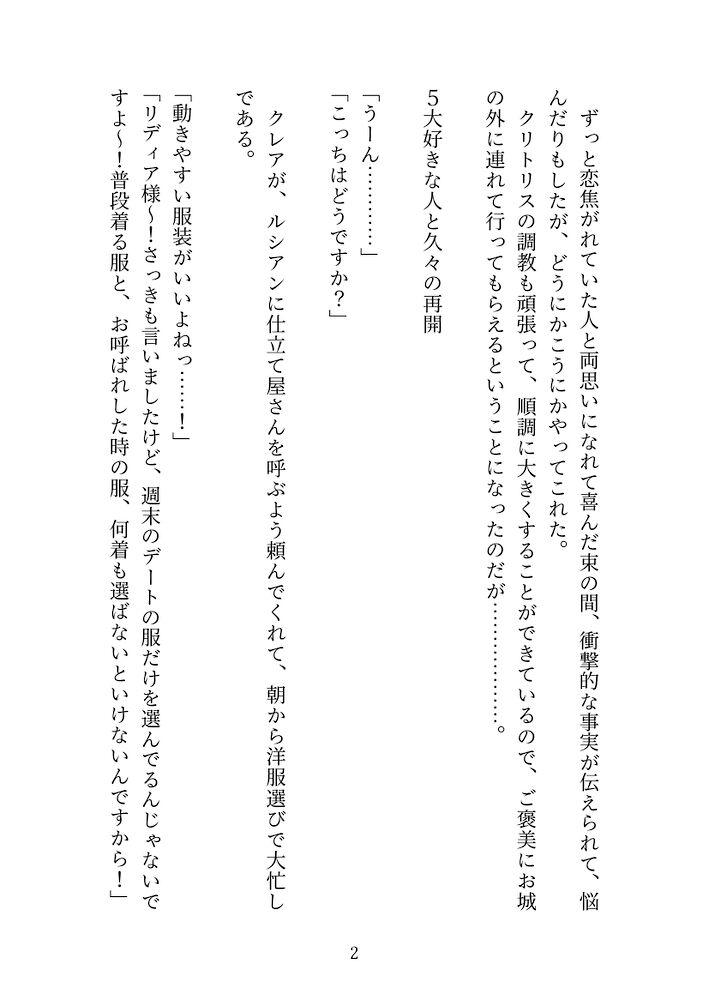 ずっと恋焦がれていた人と両思いになれて喜んだ束の間、衝撃的な事実が伝えられて、悩
んだりもしたが、どうにかこうにかやってこれた。
クリトリスの調教も頑張って、順調に大きくすることができているので、ご褒美にお城
の外に連れて行ってもらえるということになったのだが………………。
５大好きな人と久々の再開
「うーん…………」
「こっちはどうですか？」
クレアが、ルシアンに仕立て屋さんを呼ぶよう頼んでくれて、朝から洋服選びで大忙し
である。
「動きやすい服装がいいよねっ……！」
「リディア様～！さっきも言いましたけど、週末のデートの服だけを選んでるんじゃないで
すよ～！普段着る服と、お呼ばれした時の服、何着も選ばないといけないんですから！」
2